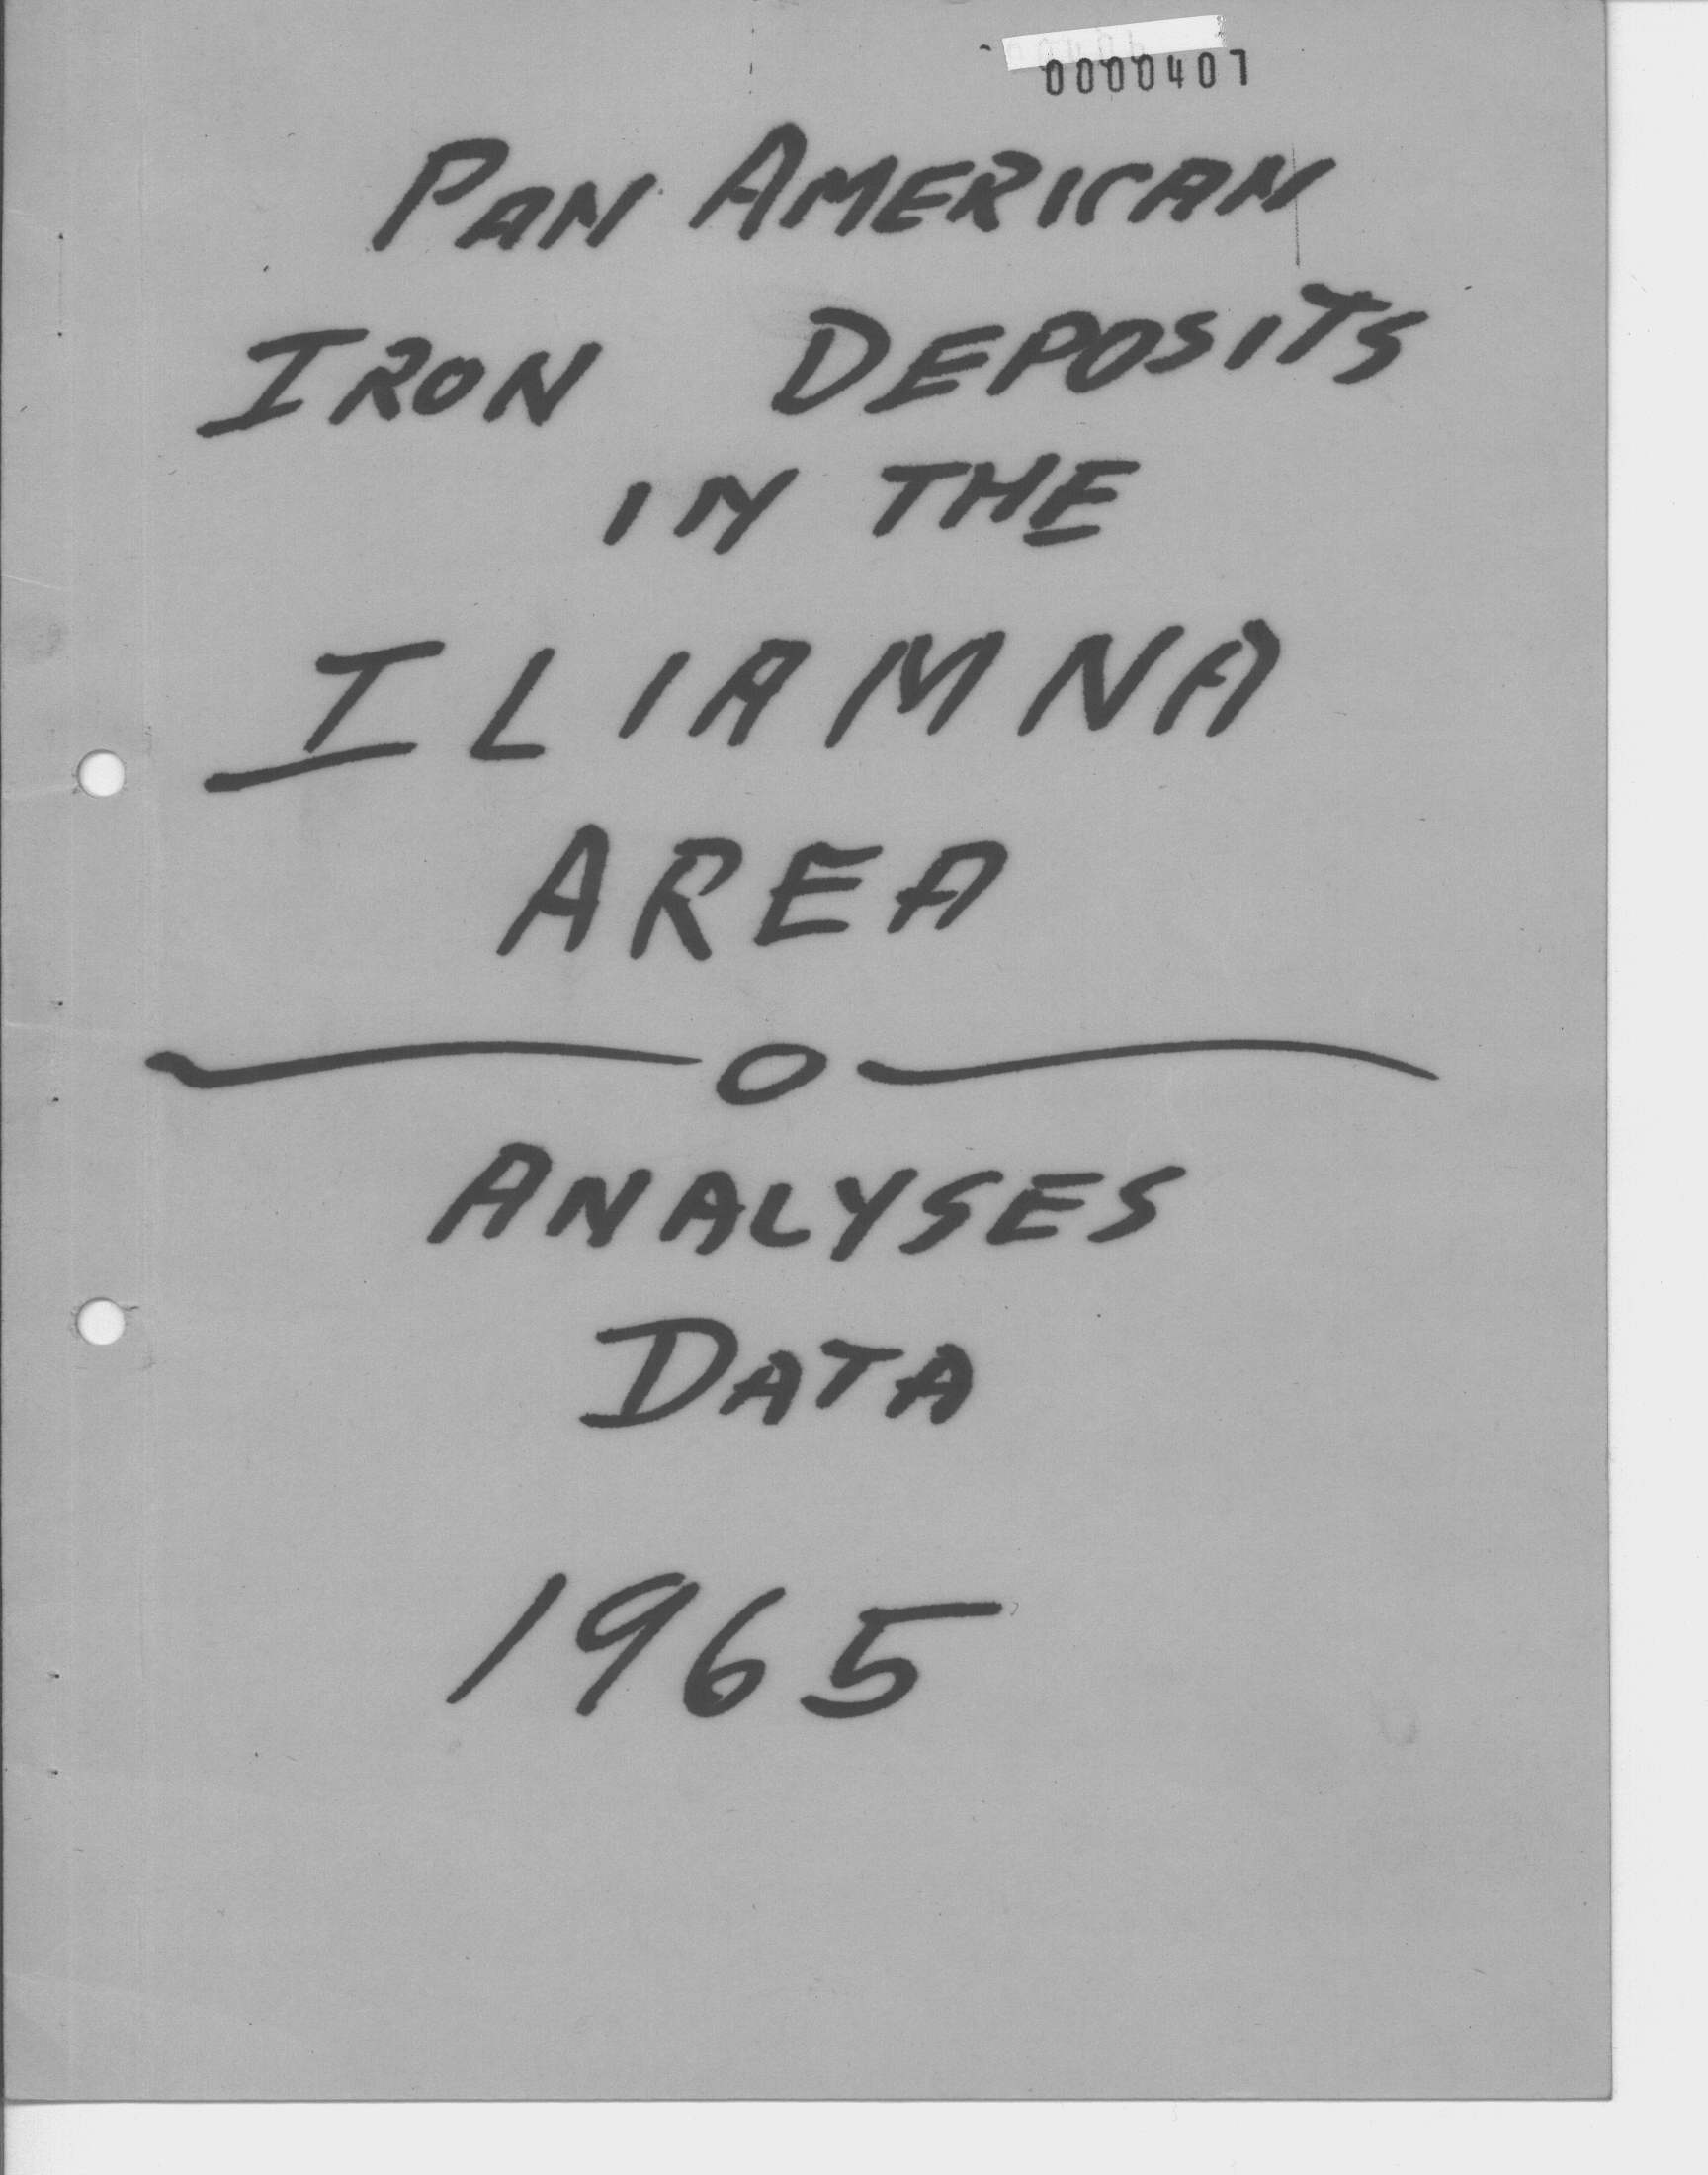 0000407
PAN AMERICAN
IRON DEPOSITS
IN THE
ILIAMNA
AREA
O
ANALYSES
DATA
1965